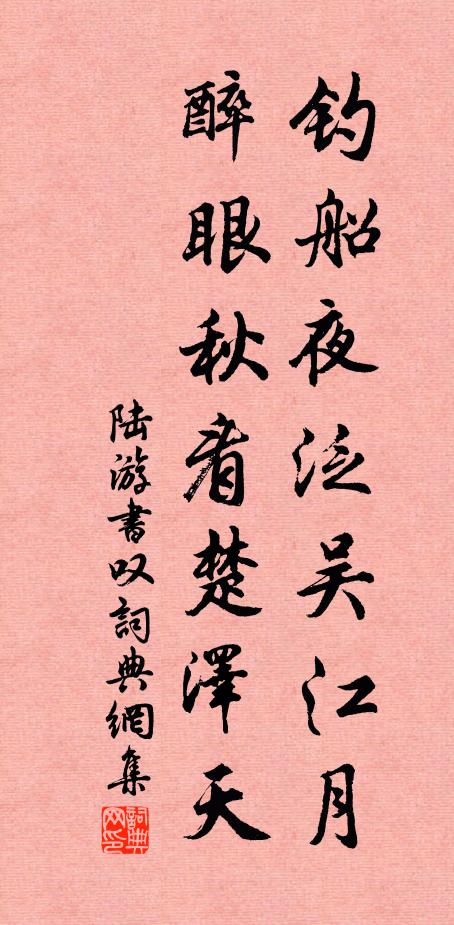 钓船夜泛吴江月
醉眼秋看楚澤天
陆游書叹詞典網集
詞典网印